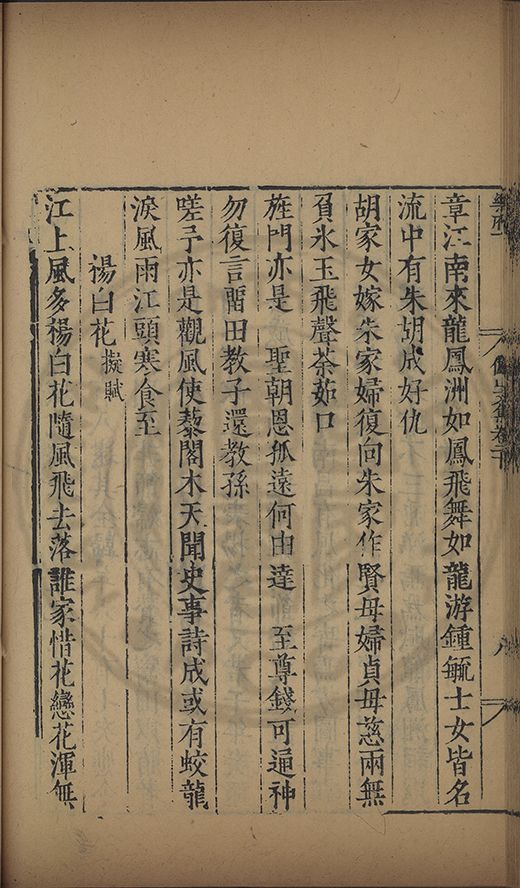 章江南來龍鳳洲如鳳飛舞如龍游鍾毓士女皆名
流中有朱胡成好仇
胡家女嫁朱家婦復向朱家作賢母婦貞母慈兩無
負氷玉飛聲荼茹口
旌門亦是 聖朝恩孤遠何由達 至尊錢可逼神
勿復言畱田教子還教孫
嗟予亦是觀風使藜閣木天聞史事詩成或有蛟龍
淚風雨江頭寒食至
楊白花 擬賦
江上風多楊白花隨風飛去落誰家惜花戀花渾無